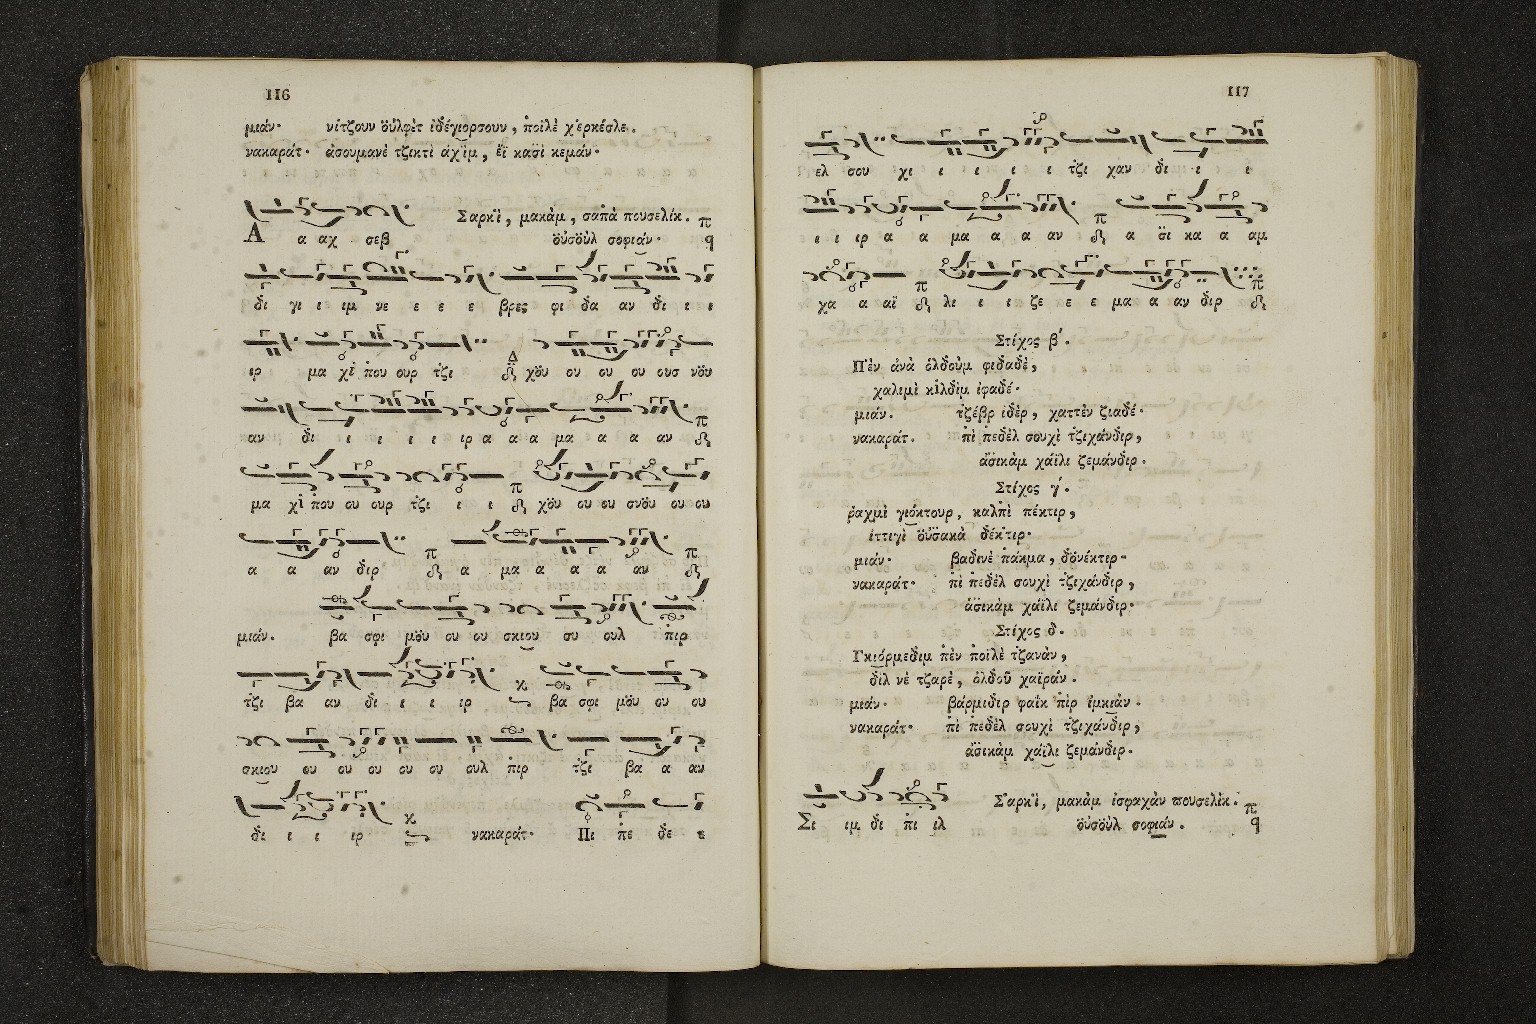 116
μιάν· νίτζουν οὐλφὲτ ἰδέγιορσουν, ποϊλὲ χ'ερκέσλε.
νακαράτ· ἀσουμανὲ τζικτὶ ἀχὶμ, ἔϊ κασὶ κεμάν·
Σαρκὶ, μακὰμ, σαπὰ πουσελίκ. π
Α α αχ σεβ οὐσοὺλ σοφιάν· q
δι γι ι ιμ νε ε ε ε βρες φι δα αν δι ι ι
ιρ μα χὶ που ουρ τζι χὂυ ου ου ου ουσ νὂυ
αν δι ι ι ι ι ιρ α α α μα α α α αν
μα χὶ που ου ουρ τζι ι ι χὂυ ου ου σνὂυ ου ου
α α αν διρ α μα α α α αν
μιάν. βα σφι μὂυ ου ου σκιου ου ουλ πιρ
τζι βα αν δι ι ι ιρ βα σφι μὂυ ου ου
σκιου ου ου ου ου ου ουλ πιρ τζι βα α αν
δι ι ι ιρ νακαράτ· Πι πε δε ε
117
ελ σου χι ι ι ι ι ι τζι χαν δι ι ι
ι ι ιρ α α μα α α αν α σι κα α αμ
χα α αϊ λι ι ι ζε ε ε μα α αν διρ
Στίχος β'.
Πὲν ἀνὰ ὀλδοὺμ φεδαδὲ,
χαλιμὲ κὶλδὶμ ἰφαδέ·
μιάν. τζέβρ ἰδὲρ, χαττὲν ζιαδέ·
νακαράτ. πὶ πεδὲλ σουχὶ τζιχάνδιρ,
ἀσικὰμ χάϊλι ζεμάνδιρ.
Στίχος γ'.
ῥαχμὶ γιόκτουρ, καλπὶ πέκτιρ,
ἰττιγὶ οὐσακὰ δέκτιρ·
μιάν· βαδινὲ πάκμα, δὂνέκτιρ·
νακαράτ· πὶ πεδὲλ σουχὶ τζιχάνδιρ,
ἀσικὰμ χάϊλι ζεμάνδιρ·
Στίχος δ.
Γκιόρμεδιμ πὲν ποϊλὲ τζανὰν,
δὶλ νὲ τζαρὲ, ὀλδοῦ χαϊράν.
μιάν· βάρμιδιρ φαΐκ πὶρ ἐμκιάν.
νακαράτ· πὶ πεδὲλ σουχὶ τζιχάνδιρ,
ἀσικὰμ χάϊλι ζεμάνδιρ.
Σαρκὶ, μακὰμ ἰσφαχὰν πουσελίκ. π
Σι ιμ δι πι ιλ οὐσοὺλ σοφιάν. q